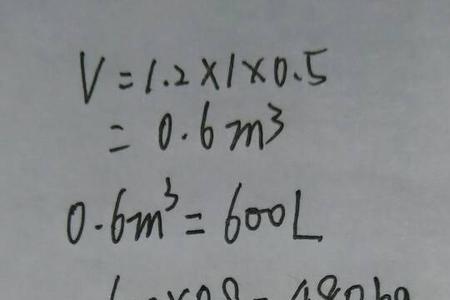 V=1.2×1×0.5
=0.6m³
0.6m³=600L